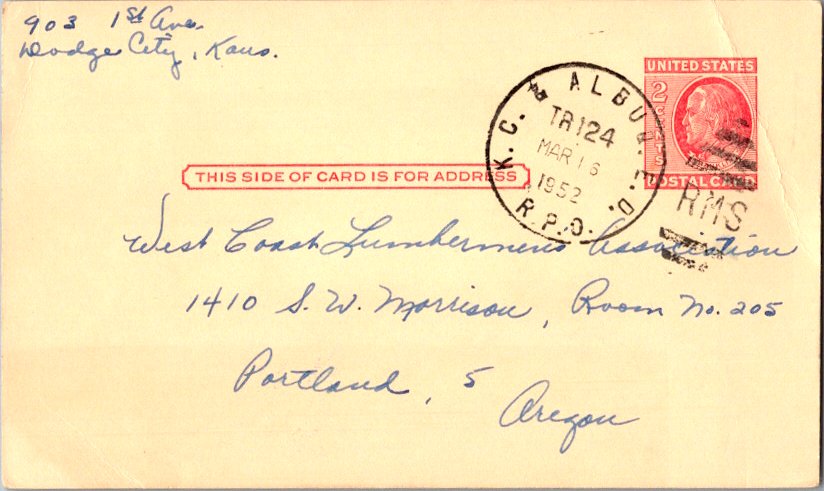 903 1st Ave.
Dodge City, Kans.
UNITED STATES
2 CENTS
POSTAL CARD
K.C. & ALBUQ. E.D.
TR124
MAR 16
1952
R.P.O.
RMS
THIS SIDE OF CARD IS FOR ADDRESS
West Coast Lumbermens Association
1410 S. W. Morrison, Room No. 205
Portland, 5
Oregon